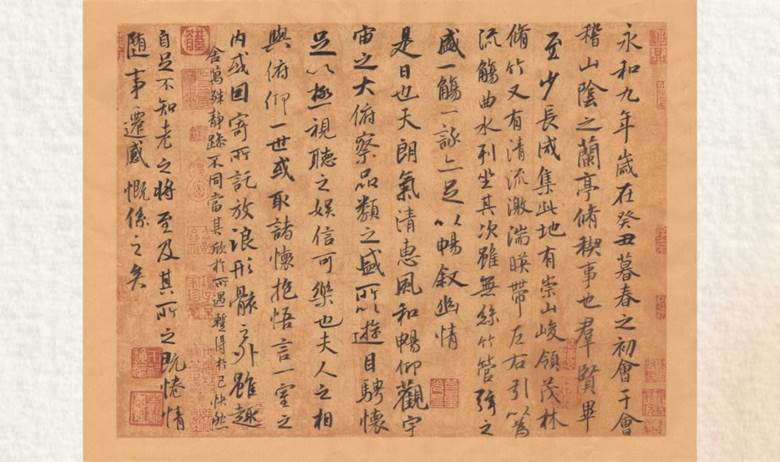 永和九年歲在癸丑暮春之初會于會
稽山陰之蘭亭脩稧事也羣賢畢
至少長咸集此地有崇山峻領茂林
脩竹又有清流激湍暎帶左右引以為
流觴曲水列坐其次雖無絲竹管弦之
盛一觴一詠亦足以暢叙幽情
是日也天朗氣清惠風和暢仰觀宇
宙之大俯察品類之盛所以遊目騁懷
足以極視聽之娛信可樂也夫人之相
與俯仰一世或取諸懷抱悟言一室之
内或因寄所託放浪形骸之外雖趣
舍萬殊靜躁不同當其欣於所遇蹔得於己快然
自足不知老之將至及其所之既惓情
随事遷感慨係之矣